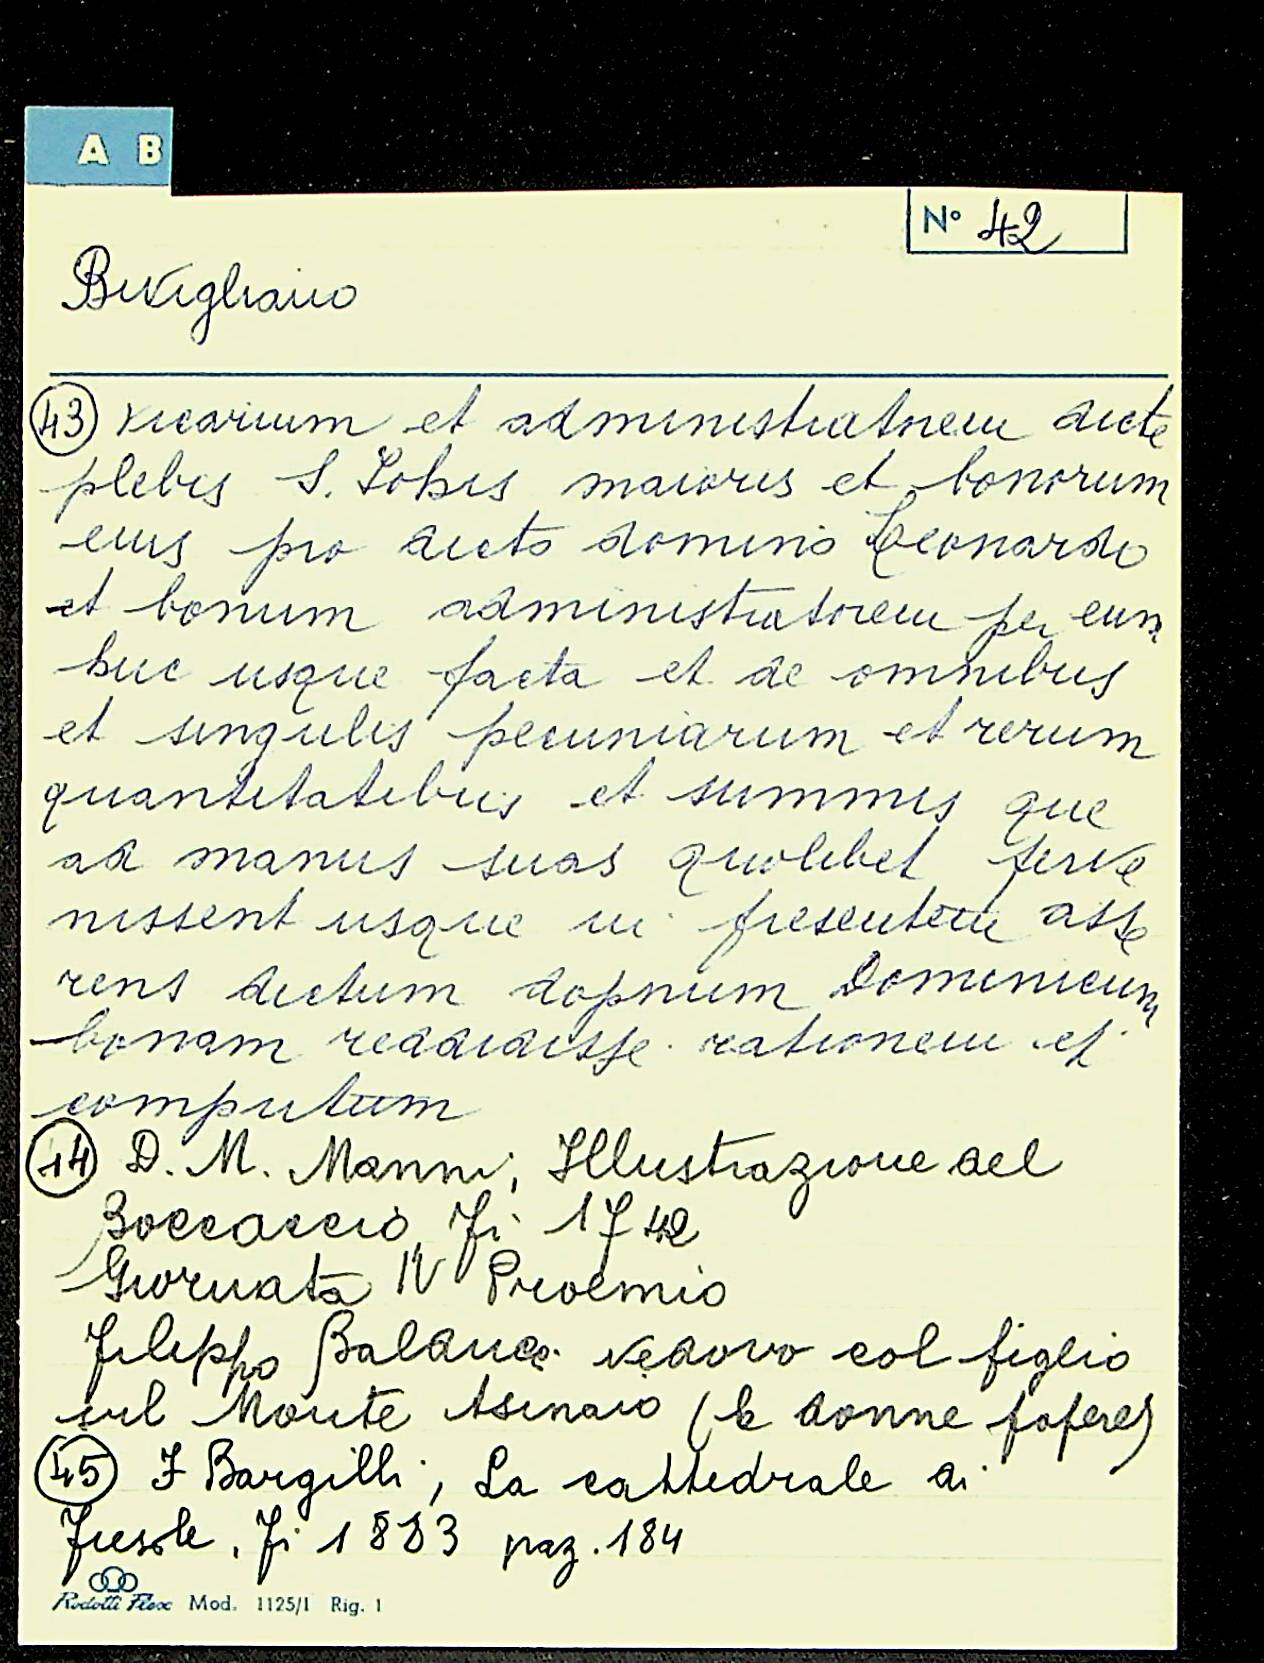 A B
N° 42
Bivigliano
43 vicarium et administratnem dicte
plebis S. Johis maioris et bonorum
eius pro dicto domino Leonardo
et bonum administratorem per eum
huc usque facta et de omnibus
et singulis pecuniarum et rerum
quantitatibus et summis que
ad manus suas quolibet perve
nissent usque in presentem asse
rens dictum dopnum Dominicum
bonam reddidisse rationem et
computum
44 D. M. Manni, Illustrazione del
Boccaccio, Fi 1742
Giornata IV Proemio
Filippo Balducci vedovo col figlio
sul Monte Asinaio (le donne papere)
45 F Bargilli, La cattedrale di
Fiesole, Fi 1883 pag. 184
Rodotti Flex Mod. 1125/1 Rig. 1